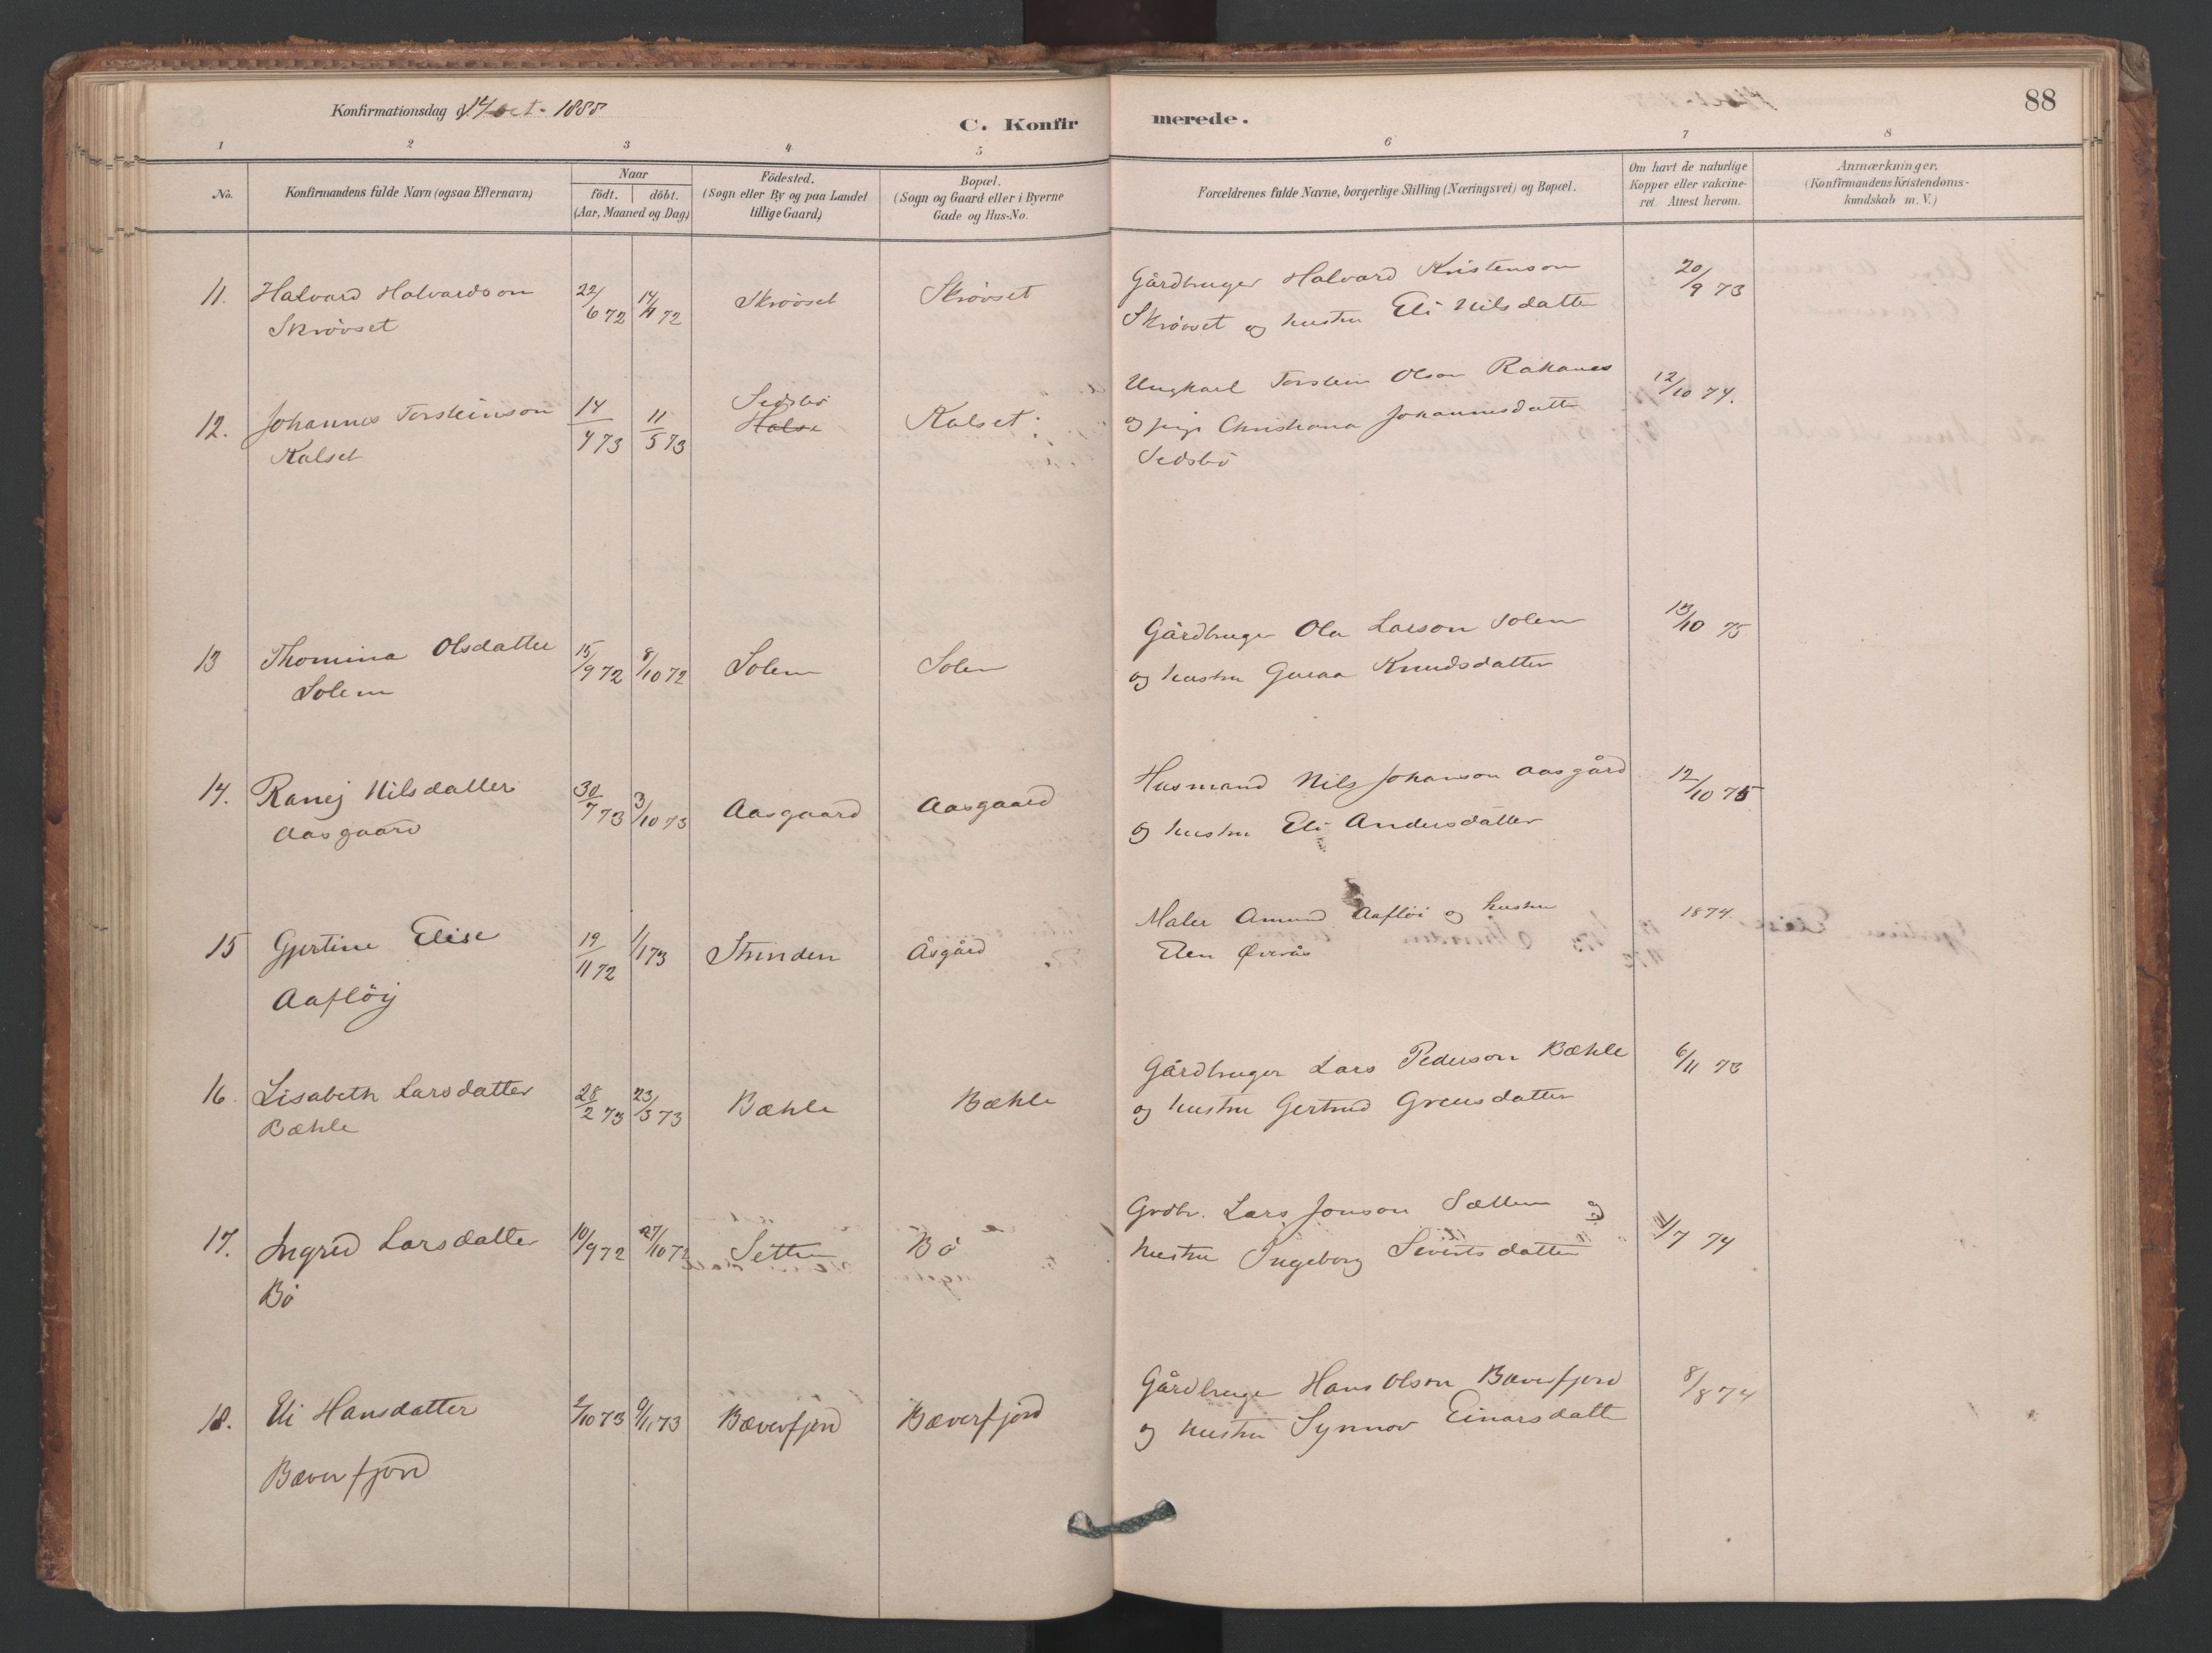 Konfirmationsdag d. 14 oct. 1888
C. Konfirmerede.
88
1 2 3 4 5 6 7 8
No.
Konfirmandens fulde Navn (ogsaa Efternavn)
Naar
födt. döbt.
(Aar, Maaned og Dag)
Födested.
(Sogn eller By og paa Landet
tillige Gaard)
Bopæl.
(Sogn og Gaard eller i Byerne
Gade og Hus-No.
Forældrenes fulde Navne, borgerlige Stilling (Næringsvei) og Bopæl.
Om havt de naturlige
Kopper eller vakcine-
ret Attest herom.
Anmærkninger,
(Konfirmandens Kristendoms-
kundskab m. V.)
11. Halvard Halvardson 22/6 72 14/7 72 Skrövset Skrövset Gårdbruger Halvard Kristenson 20/9 73
Skrövset Skrövset og hustru Eli Nilsdatter
12. Johannes Torsteinson 14/4 73 11/5 73 Sedsbö Halse Kalset Ungkarl Torstein Olson Rakanes 12/10 74.
Kalset og pige Christiana Johannesdatter
Sedsbö
13 Thomina Olsdatter 15/9 72 8/10 72 Solem Solem Gårdbruger Ola Larson Solem 13/10 75
Solem og hustru Guraa Knudsdatter
14. Ranej Nilsdatter 30/7 73 3/10 73 Aasgaard Aasgaard Husmand Nils Johanson Aasgård 12/10 75
Aasgaard og hustru Eli Andersdatter
15 Gjertine Elise 19/11 72 1/1 73 Strinden Åsgård Maler Amund Aaflöi og hustru 1874.
Aaflöij Elen Øverås
16. Lisabeth Larsdatter 28/2 73 23/3 73 Bæhle Bæhle Gårdbruger Lars Pederson Bæhle 6/11 73
Bæhle og hustru Gertrud Greusdatter
17. Ingrid Larsdatter 10/9 72 27/10 72 Settem Bö Grdbr. Lars Jonson Sættem og 11/7 74
Bö hustru Ingeborg Sivertsdatter
18. Eli Hansdatter 2/10 73 9/11 73 Bæverfjord Bæverfjord Gårdbruger Hans Olson Bæverfjord 8/8 74
Bæverfjord og hustru Synnov Einarsdatter